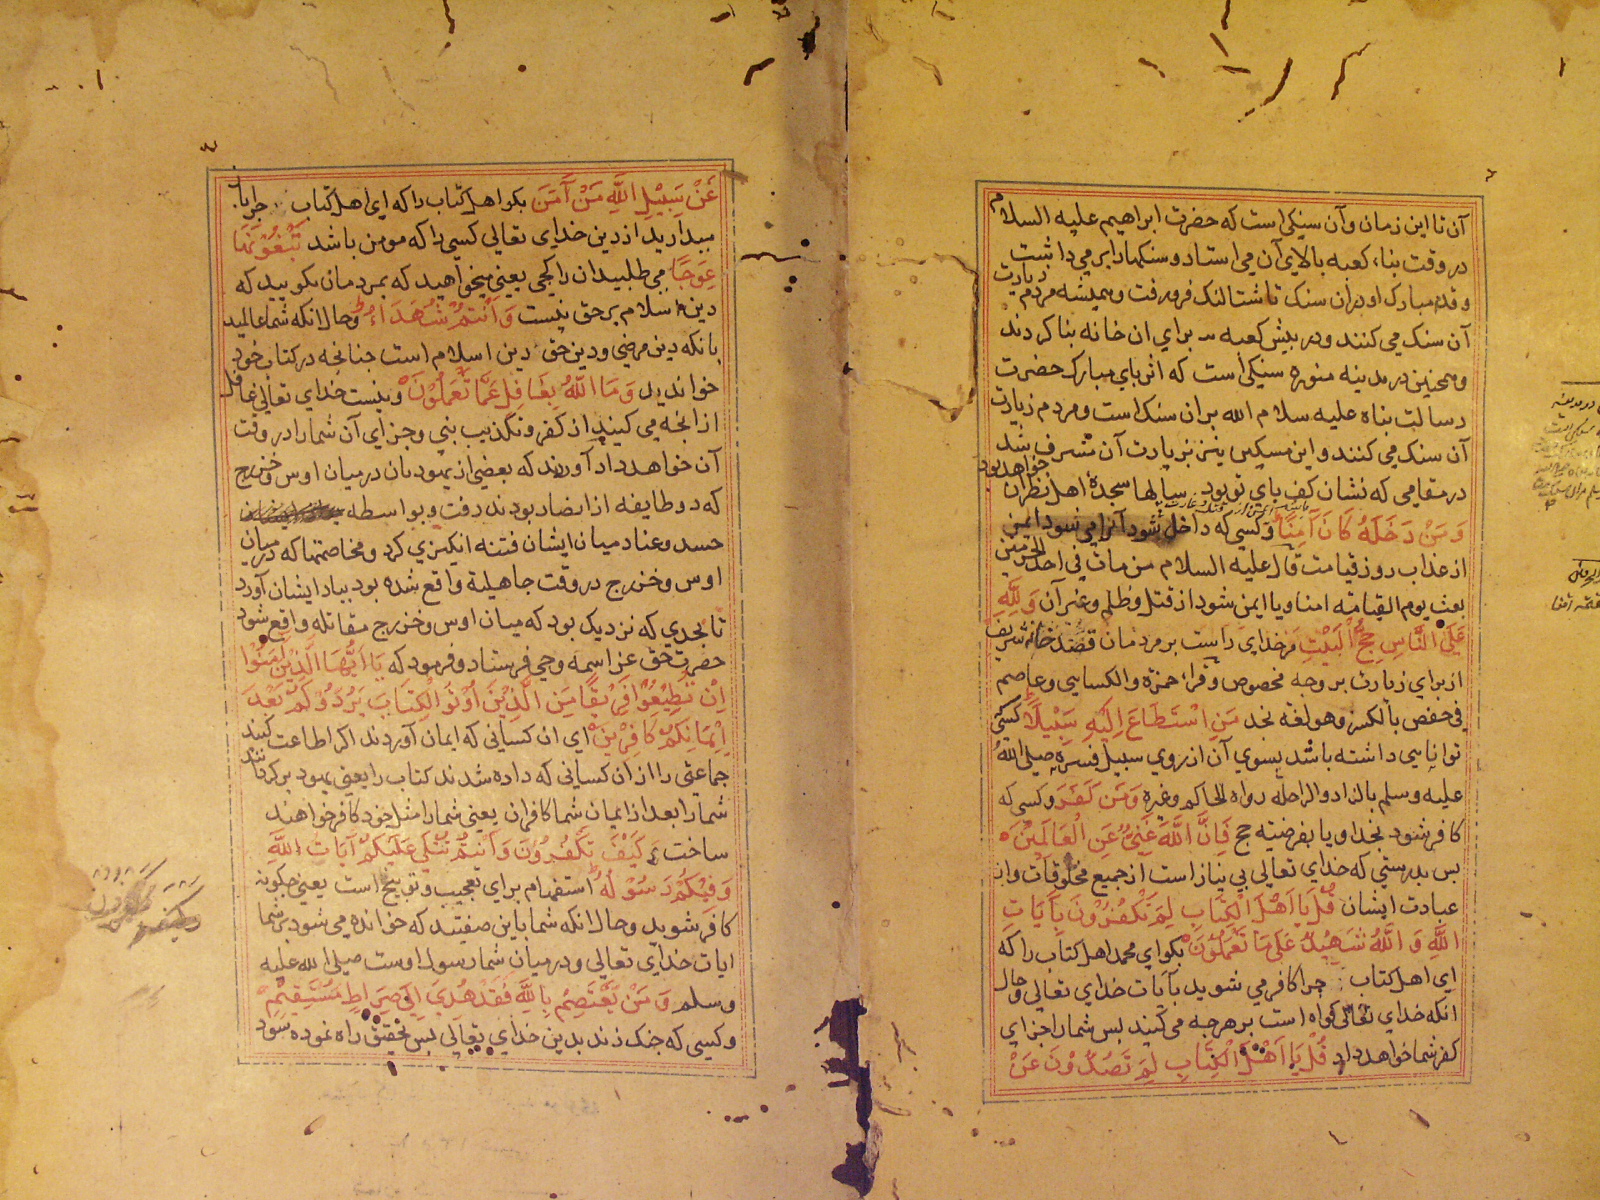 آن تا این زمان وآن سنکی است که حضرت ابراهیم علیه السلام
در وقت بناء کعبه بالای آن می استاد و سنکها برابر می داشت
و قدم مبارک او در آن سنک تا شتالنک فرو رفت و همیشه مردم زیارت
آن سنک می کنند و در پیش کعبه برای ان خانه بنا کردند
و همچنین در مدینه منوره سنکی است که اثر پای مبارک حضرت
رسالت پناه علیه سلام الله بران سنک است و مردم زیارت
آن سنک می کنند و این مسکین نیز بزیارت آن مشرف شد
در مقامی که نشان کف پای تو بود سالها سجدۀ اهل نظران خواهد بود
وَمَنْ دَخَلَهُ كَانَ آمِنًا وکسی که داخل شود آنرا می شود ایمن
از عذاب روز قیامت قال علیه السلام من مات فی احد الحرمین
بعث یوم القیامة امنا و یا ایمن شود از قتل و ظلم و غیر آن وَلِلَّهِ
عَلَى النَّاسِ حِجُّ الْبَيْتِ مر خدای راست بر مردمان قصد خانه شریف
از برای زیارت بر وجه مخصوص و قراء حمزه والکسایی وعاصم
فی حفص بالکسر وهو لغة نجد مَنِ اسْتَطَاعَ اِلَيْهِ سَبِيلًا کسی
توانایی داشته باشد بسوی آن از روی سبیل فسره صلی الله
علیه وسلم بالزاد والراحلة رواه الحاکم وغیره وَمَن كَفَرَ وکسی که
کافر شود بخدا و یا بفرضیة حج فَاِنَّ اللَّهَ غَنِيٌّ عَنِ الْعَالَمِيْنَ
بس بدرستی که خدای تعالی بی نیاز است از جمیع مخلوقات واز
عبادت ایشان قُلْ يَا اَهْلَ الْكِتَابِ لِمَ تَكْفُرُوْنَ بِآيَاتِ
اللَّهِ وَاللَّهُ شَهِيْدٌ عَلَى مَا تَعْمَلُوْنَ بکو ای محمد اهل کتاب را که
ای اهل کتاب چرا کافر می شوید بآیات خدای تعالی وحال
انکه خدای تعالی کواه است بر هرچه می کنید بس شمارا جزای
کفر شما خواهد داد قُلْ يَا اَهْلَ الْكِتَابِ لِمَ تَصُدُّوْنَ عَنْ
عَنْ سَبِيْلِ اللَّهِ مَنْ آمَنَ بکو اهل کتاب را که ای اهل کتاب چرا باز
میدارید از دین خدای تعالی کسی را که مومن باشد تَبْغُوْنَهَا
عِوَجًا می طلبید ان را کجی یعنی میخواهید که بمردمان بکویید که
دین اسلام بر حق نیست وَاَنْتُمْ شُهَدَاءُ وحال انکه شما عالمید
بانکه دین مرضی و دین حق دین اسلام است چنانچه در کتاب خود
خوانده اید وَمَا اللَّهُ بِغَافِلٍ عَمَّا تَعْمَلُوْنَ ونیست خدای تعالی غافل
از انچه می کنید از کفر و تکذیب نبی و جزای آن شمارا در وقت
آن خواهد داد آورده اند که بعضی از یهودیان در میان اوس وخزرج
که دو طایفه از انصار بودند رفت و بواسطه
حسد وعناد میان ایشان فتنه انکیزی کرد و مخاصمتها که در میان
اوس وخزرج در وقت جاهلیة واقع شده بود بیاد ایشان آورد
تا بحدی که نزدیک بود که میان اوس وخزرج مقاتله واقع شود
حضرت حق عز اسمه وحی فرستاد و فرمود که يَا اَيُّهَا الَّذِيْنَ آمَنُوْا
اِنْ تُطِيْعُوْا فَرِيْقًا مِنَ الَّذِيْنَ اُوْتُوا الْكِتَابَ يَرُدُّوْكُمْ بَعْدَ
اِيْمَانِكُمْ كَافِرِيْنَ ای ان کسانی که ایمان آوردند اکر اطاعت کنید
جماعتی را از ان کسانی که داده شدند کتاب را یعنی یهود بر کردانند
شمارا بعد از ایمان شما کافران یعنی شمارا مثل خود کافر خواهند
ساخت كَيْفَ تَكْفُرُوْنَ وَاَنْتُمْ تُتْلَى عَلَيْكُمْ آيَاتُ اللَّهِ
وَفِيْكُمْ رَسُوْلُهُ استفهام برای تعجیب و توبیخ است یعنی چکونه
کافر شوید وحال انکه شما باین صفتید که خوانده می شود بر شما
ایات خدای تعالی و در میان شما رسول اوست صلی الله علیه
وسلم وَمَنْ يَعْتَصِمْ بِاللَّهِ فَقَدْ هُدِيَ اِلَى صِرَاطٍ مُسْتَقِيْمٍ
وکسی که چنک زند بدین خدای تعالی بس بتحقیق راه نموده شود